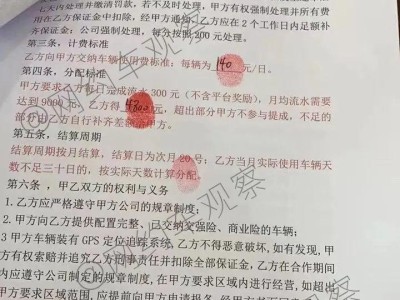 七天内处理并缴清罚款，若不及时处理，甲方有权强制处理并所有费
用在乙方保证金中扣除，经甲方通知，乙方应在 2 个工作日内足额补
齐保证金；公司强制处理，每分按照 200 元处理。
第三条，计费标准
乙方向甲方交纳车辆使用费标准：每辆为 140 元/日。
第四条，分配标准
甲方要求乙方每日完成流水 300 元（不含平台奖励），月均流水需要
达到 9000 元，乙方得 4800 元，超出部分甲方不参与提成，不足的
部分由乙方自行补齐差额给甲方。
第五条，结算周期
结算周期按月结算，结算日为次月 20 号；乙方当月实际使用车辆天
数不足三十日的，按实际天数计算分配。
第六条，甲乙双方的权利与义务
1.乙方应严格遵守甲方公司的规章制度；
2.甲方向乙方提供配置完整、已交纳交强险、商业险的车辆；
3 甲方车辆装有 GPS 定位追踪系统，乙方不得恶意破坏，如有发现，甲
方有权索赔并追究乙方刑事责任并扣除全部保证金，乙方在合作期间
内应遵守公司制定的规章制度，在甲方要求区域内进行经营，如超出
甲方要求区域范围，应提前向甲方申请报备，
网约车观察